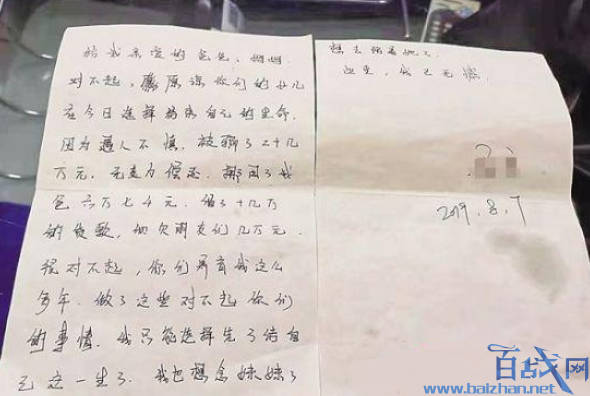 给我亲爱的爸爸、妈妈
对不起，请原谅你们的女儿
在今日选择结束自己的生命.
因为遇人不慎，被骗了二十几
万元. 无力偿还. 挪用了我
爸六万七千元. 借了十几万
的贷款，加欠朋友们几万元.
很对不起，你们养育我这么
多年. 做了这些对不起你们
的事情. 我只能选择先了结自
己这一生了. 我也想念妹妹了
想去陪着她了.
这里，我已无憾.
2019.8.7
百战网
www.baizhan.net